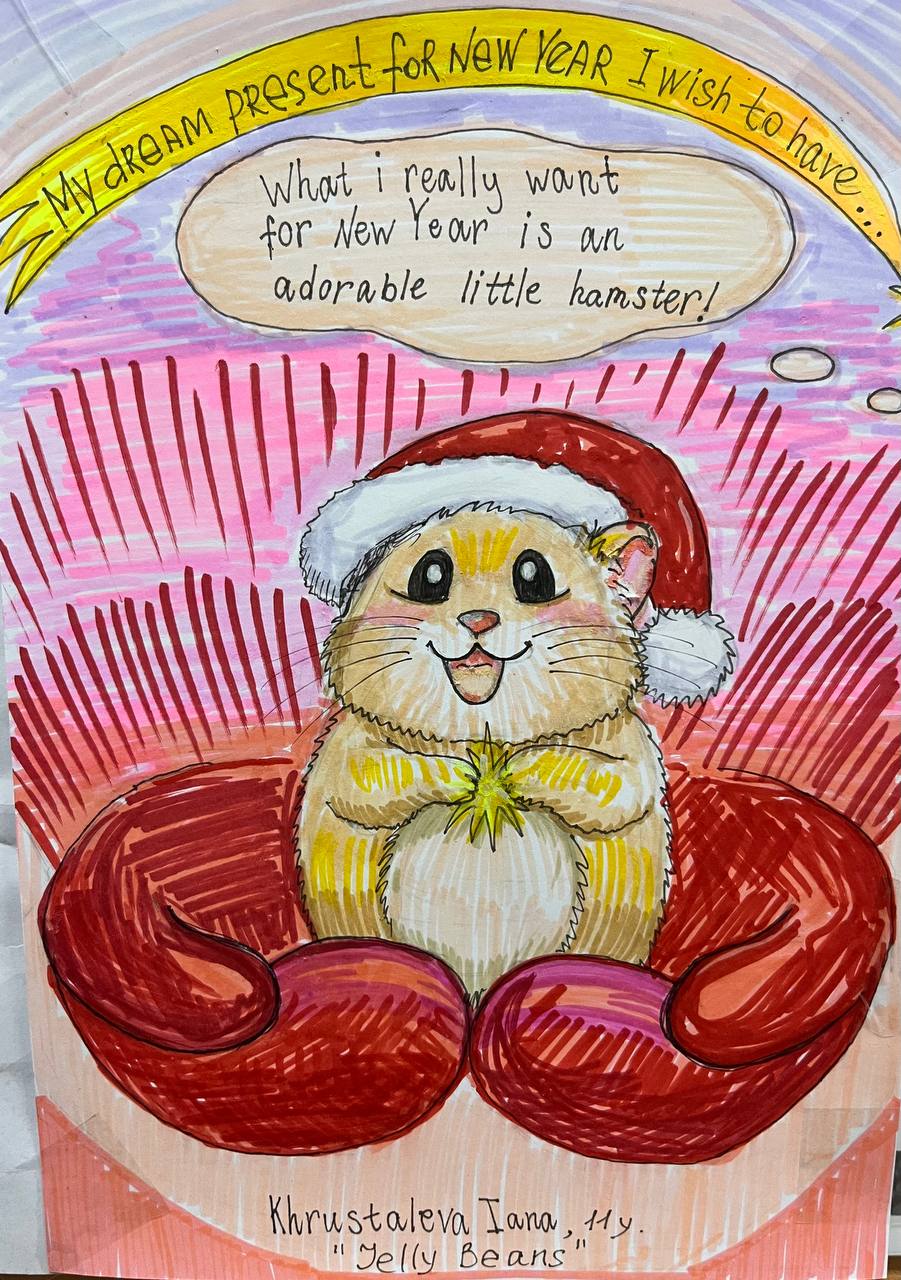 My dream present for New Year I wish to have...
What i really want
for New Year is an
adorable little hamster!
Khrustaleva Iana, 11 y.
"Jelly Beans"